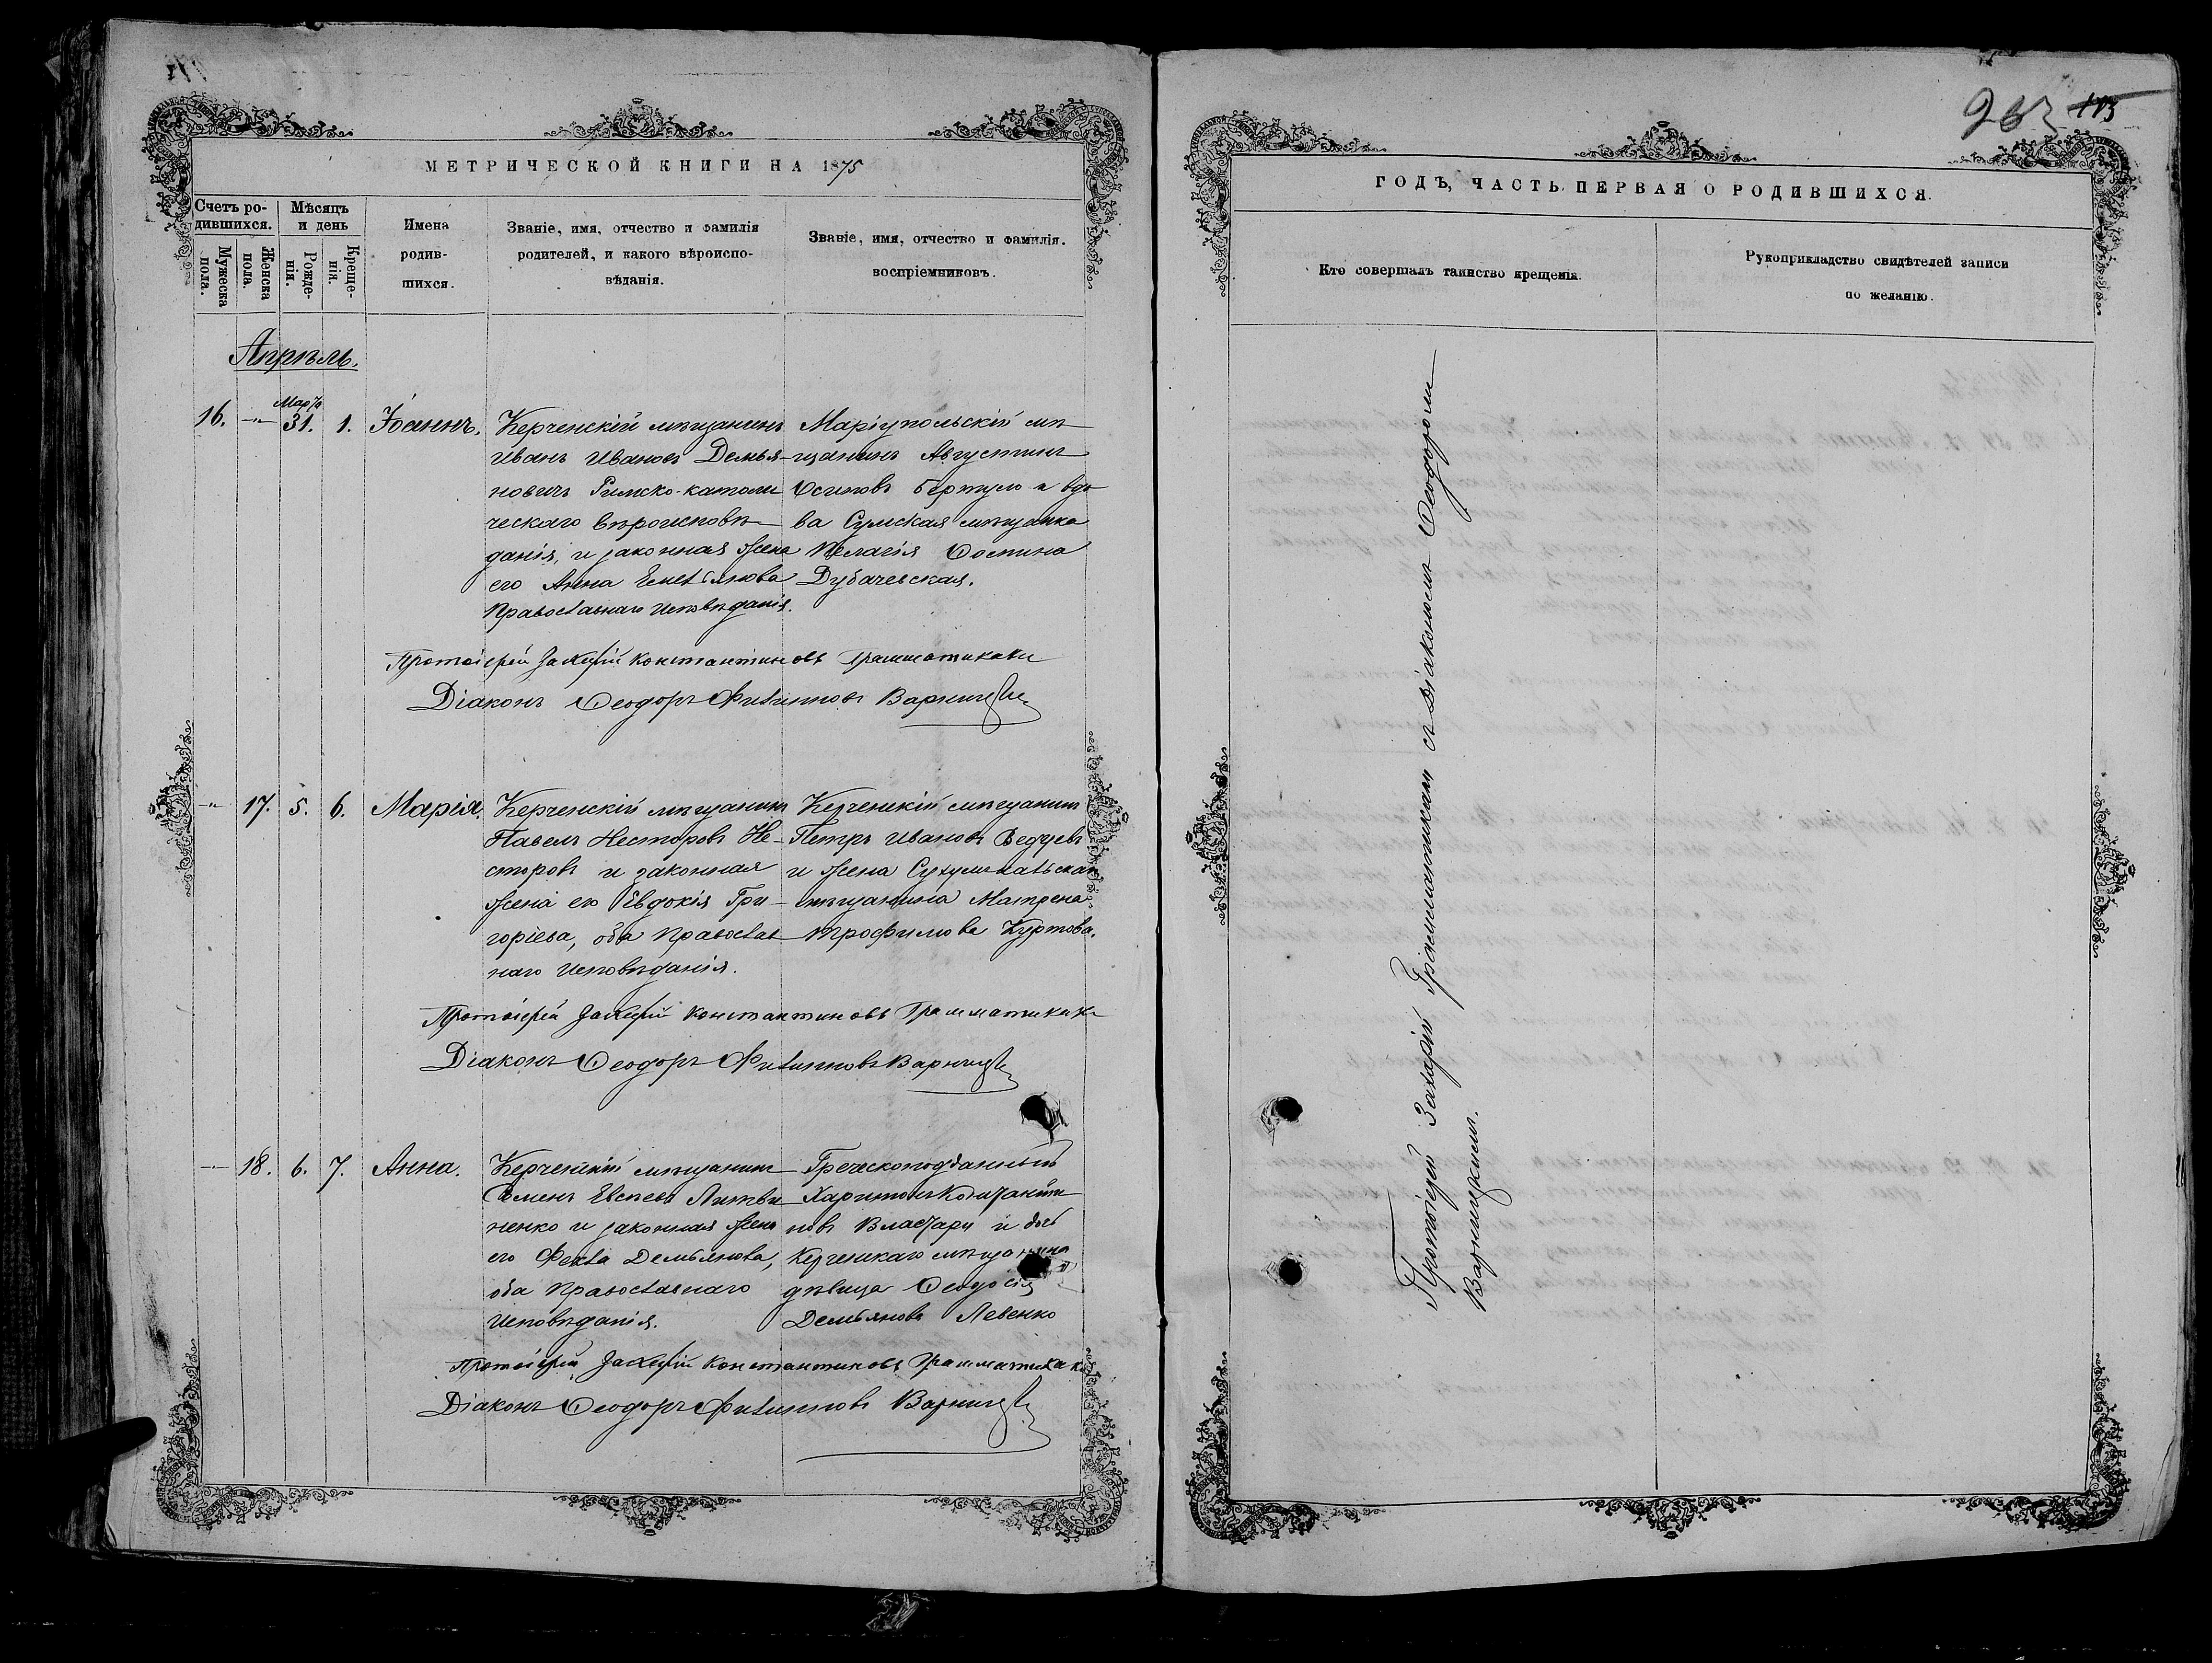 МЕТРИЧЕСКОЙ КНИГИ НА 1875
Счетъ ро-
дившихся.
Мѣсяцъ
и день
Мужеска
пола.
Женска
пола.
Рожде-
нія.
Креще-
нія.
Имена
родив-
шихся.
Званіе, имя, отчество и фамилія
родителей, и какого вѣроиспо-
вѣданія.
Званіе, имя, отчество и фамилія.
воспріемниковъ.
Апрѣль.
16. -"- Мар. 31. 1. Іоаннъ.
Керченскій мѣщанинъ
Иванъ Ивановъ Демья-
новичъ Римско-католи
ческаго вѣроисповѣ-
данія, и законная жена
его Анна Емельянова
Православнаго исповѣданія.
Маріупольскій мѣ-
щанинъ Августинъ
Осиповъ Бертуло и вдо
ва Сумская мѣщанка
Пелагія Фомина
Дубачевская.
Протоіерей Захарій Константиновъ Грамматикаки
Діаконъ Ѳеодоръ Филипповъ
-"- 17. 5. 6. Марія.
Керченскій мѣщанинъ
Павелъ Несторовъ Не-
сторовъ и законная
жена его Евдокія Гри-
горіева, оба Православ
наго исповѣданія.
Керченскій мѣщанинъ
Петръ Ивановъ
и жена
мѣщанина Матрена
Трофимова Куртова.
Протоіерей Захарій Константиновъ Грамматикаки
Діаконъ Ѳеодоръ Филипповъ
-"- 18. 6. 7. Анна.
Керченскій мѣщанинъ
Семенъ Евсеевъ Литви
ненко и законная жена
его Фекла Демьянова,
оба Православнаго
исповѣданія.
Греческоподданный
Харитонъ Константи
новъ Властари и дочь
Керченскаго мѣщанина
дѣвица Ѳеодосія
Демьянова Левенко
Протоіерей Захарій Константиновъ Грамматикаки
Діаконъ Ѳеодоръ Филипповъ
113
ГОДЪ, ЧАСТЬ ПЕРВАЯ О РОДИВШИХСЯ.
Кто совершалъ таинство крещенія.
Рукоприкладство свидѣтелей записи
по желанію.
Протоіерей Захарій Грамматикаки съ діакономъ Ѳеодоромъ